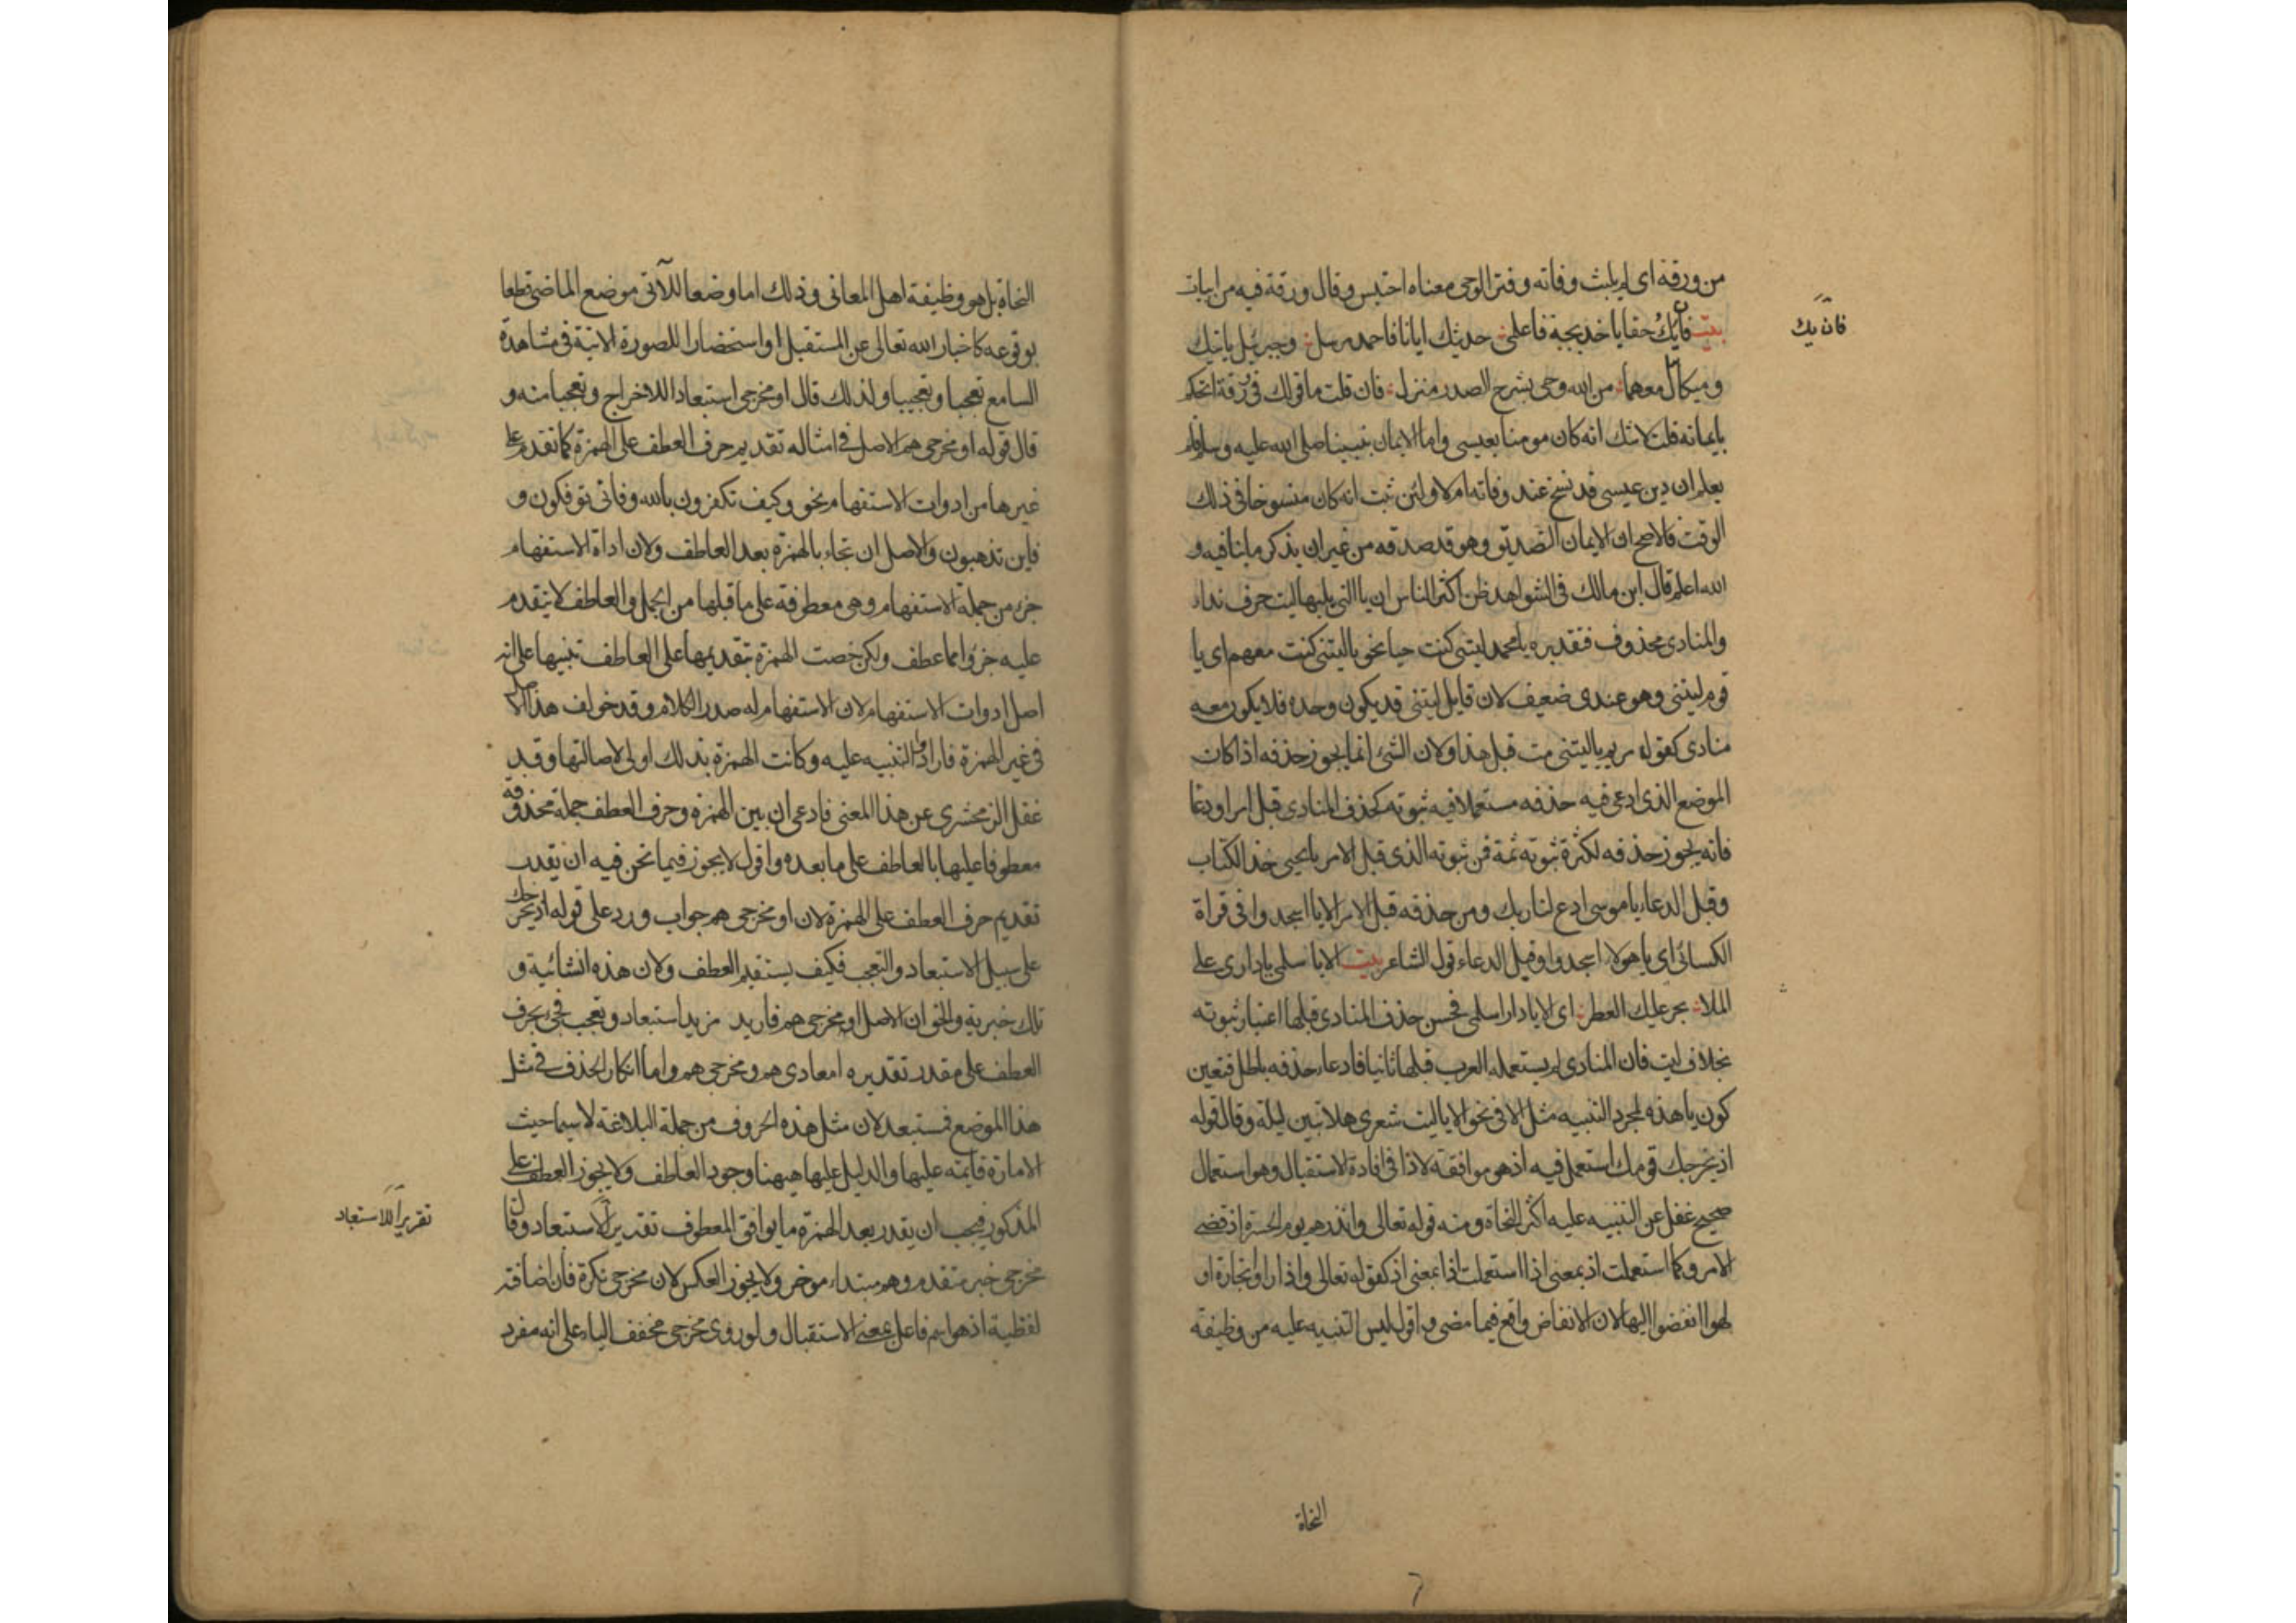 من ورقة اى لم يلبث وفاته وفتر الوحى معناه احتبس وقال ورقة فيه من ابيات
بيت فان يك حقا يا خديجة فاعلمى حديثك ايانا فاحمد مرسل وجبرئيل ياتيك
وميكال معهما من الله وحى يشرح الصدر منزل فان قلت ما قولك فى ورقة اتحكم
بايمانه قلت لا شك انه كان مومنا بعيسى واما الايمان بنبينا صلى الله عليه وسلم فلم
يعلم ان دين عيسى قد نسخ عند وفاته ام لا ولئن ثبت انه كان منسوخا فى ذلك
الوقت فالاصح ان الايمان التصديق وهو قد صدقه من غير ان يذكر ما ينافيه و
الله اعلم قال ابن مالك فى الشواهد ظن اكثر الناس ان يا التى يليها ليت حرف نداء
والمنادى محذوف فتقديره يا محمد ليتنى كنت حيا نحو ياليتنى كنت معهم اى يا
قوم ليتنى وهو عندى ضعيف لان قايل ليتنى قد يكون وحده فلا يكون معه
منادى كقول مريم ياليتنى مت قبل هذا ولان الشئ انما يجوز حذفه اذا كان
الموضع الذى ادعى فيه حذفه مستعملا فيه ثبوته كحذف المنادى قبل امر او دعا
فانه يجوز حذفه لكثرة ثبوته ثمة فمن ثبوته الذى قبل الامر يا يحيى خذ الكتاب
وقبل الدعاء يا موسى ادع لنا ربك ومن حذفه قبل الامر الا يا اسجدوا فى قراة
الكسائى اى يا هولاء اسجدوا وقبل الدعاء قول الشاعر بيت الا يا اسلمى يا دارى على
البلا بجرعايك القطر اى الا يا دار اسلمى فحسن حذف المنادى قبلها اعتبار ثبوته
بخلاف ليت فان المنادى لم يستعمله العرب قبلها ثانيا فادعاء حذفه باطل فتعين
كون يا هذه لمجرد التنبيه مثل الا فى نحو الا ياليت شعرى هلا تبين ليلة وقال قوله
اذ يخرجك قومك استعمل فيه اذ هو موافقة لاذا فى افادة الاستقبال وهو استعمال
صحيح غفل عن التنبيه عليه اكثر النحاة ومنه قوله تعالى وانذرهم يوم الحسرة اذ قضى
الامر وكما استعملت اذ بمعنى اذا استعملت اذا بمعنى اذ كقوله تعالى واذا راوا تجارة او
لهوا انفضوا اليها لان الانفضاض واقع فيما مضى واقول ليس التنبيه عليه من وظيفة
فان يك
النحاة
٦
النحاة بل هو وظيفة اهل المعانى وذلك اما وضعا للآتى موضع الماضى قطعا
بوقوعه كاخبار الله تعالى عن المستقبل او استحضارا للصورة الاتية فى مشاهدة
السامع تعجبا وتعجيبا ولذلك قال او مخرجى استبعادا للاخراج وتعجبا منه و
قال قوله او مخرجى هم الاصل فى امثاله تقديم حرف العطف على الهمزة كما تقدم على
غيرها من ادوات الاستفهام نحو وكيف تكفرون بالله وفانى توفكون و
فاين تذهبون والاصل ان تجاء بالهمزة بعد العاطف ولان اداة الاستفهام
جزء من جملة الاستفهام وهى معطوفة على ما قبلها من الجمل والعاطف لا يتقدم
عليه جزء وانما عطف ولكن خصت الهمزة بتقديمها على العاطف تنبيها على انه
اصل ادوات الاستفهام لان الاستفهام له صدر الكلام وقد خولف هذا الاصل
فى غير الهمزة فارادوا التنبيه عليه وكانت الهمزة بذلك اولى لاصالتها وقد
غفل الزمخشرى عن هذا المعنى فادعى ان بين الهمزة وحرف العطف جملة محذوفة
معطوفا عليها بالعاطف على ما بعده واقول لا يجوز فيما نحن فيه ان يقدر
تقديم حرف العطف على الهمزة لان او مخرجى هم جواب ورد على قوله اذ يخرجك
على سبيل الاستبعاد والتعجب فكيف يستقيم العطف ولان هذه انشائية و
تلك خبرية والحق ان الاصل او مخرجى هم فاريد مزيد استبعاد وتعجب فجئ بحرف
العطف على مقدر تقديره امعادى هم ومخرجى هم واما انكار الحذف فى مثل
هذا الموضع فمستبعد لان مثل هذه الحروف من جملة البلاغة لا سيما حيث
الامارة قايمة عليها والدليل عليها هيهنا وجود العاطف ولا يجوز العطف على
المذكور فيجب ان يقدر بعد الهمزة ما يوافق المعطوف تقديرا للاستبعاد وقال
مخرجى خبر متقدم وهم مبتداء موخر ولا يجوز العكس لان مخرجى نكرة فان اضافته
لفظية اذ هو اسم فاعل بمعنى الاستقبال ولو روى مخرجى مخفف الياء على انه مفرد
تقريرا للاستبعاد